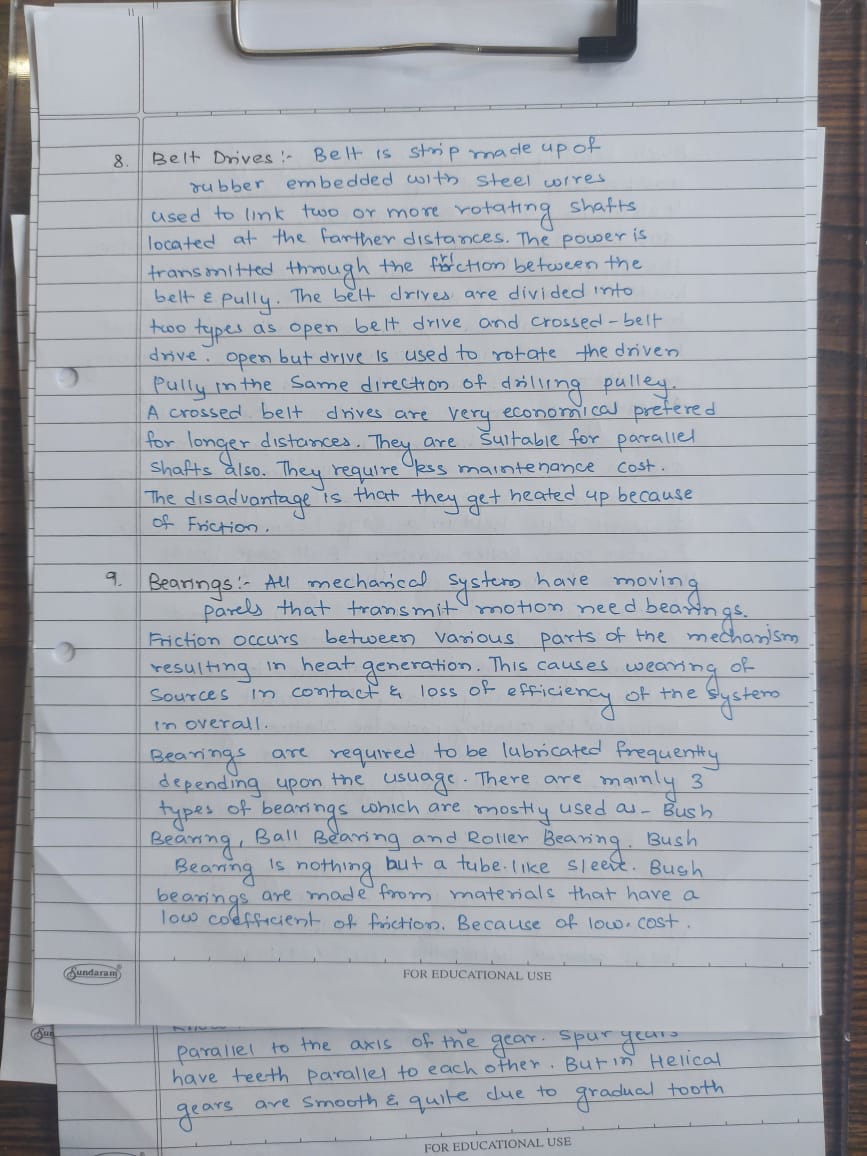 8. Belt Drives :- Belt is strip made up of
rubber embedded with steel wires
used to link two or more rotating shafts
located at the farther distances. The power is
transmitted through the friction between the
belt & pully. The belt drives are divided into
two types as open belt drive and crossed-belt
drive. open but drive is used to rotate the driven
Pully in the same direction of driling pulley.
A crossed belt drives are very economical prefered
for longer distances. They are suitable for parallel
shafts also. They require less maintenance cost.
The disadvantage is that they get heated up because
of Friction.
9. Bearings :- All mechanical system have moving
parels that transmit motion need bearings.
Friction occurs between various parts of the mechanism
resulting in heat generation. This causes wearing of
Sources in contact & loss of efficiency of the system
in overall.
Bearings are required to be lubricated frequently
depending upon the usuage. There are mainly 3
types of bearings which are mostly used as - Bush
Bearing, Ball Bearing and Roller Bearing. Bush
Bearing is nothing but a tube.like sleeve. Bush
bearings are made from materials that have a
low coefficient of friction. Because of low. cost.
Sundaram
FOR EDUCATIONAL USE
Sun
parallel to the axis of the gear. Spur gears
have teeth parallel to each other. But in Helical
gears are smooth & quite due to gradual tooth
FOR EDUCATIONAL USE